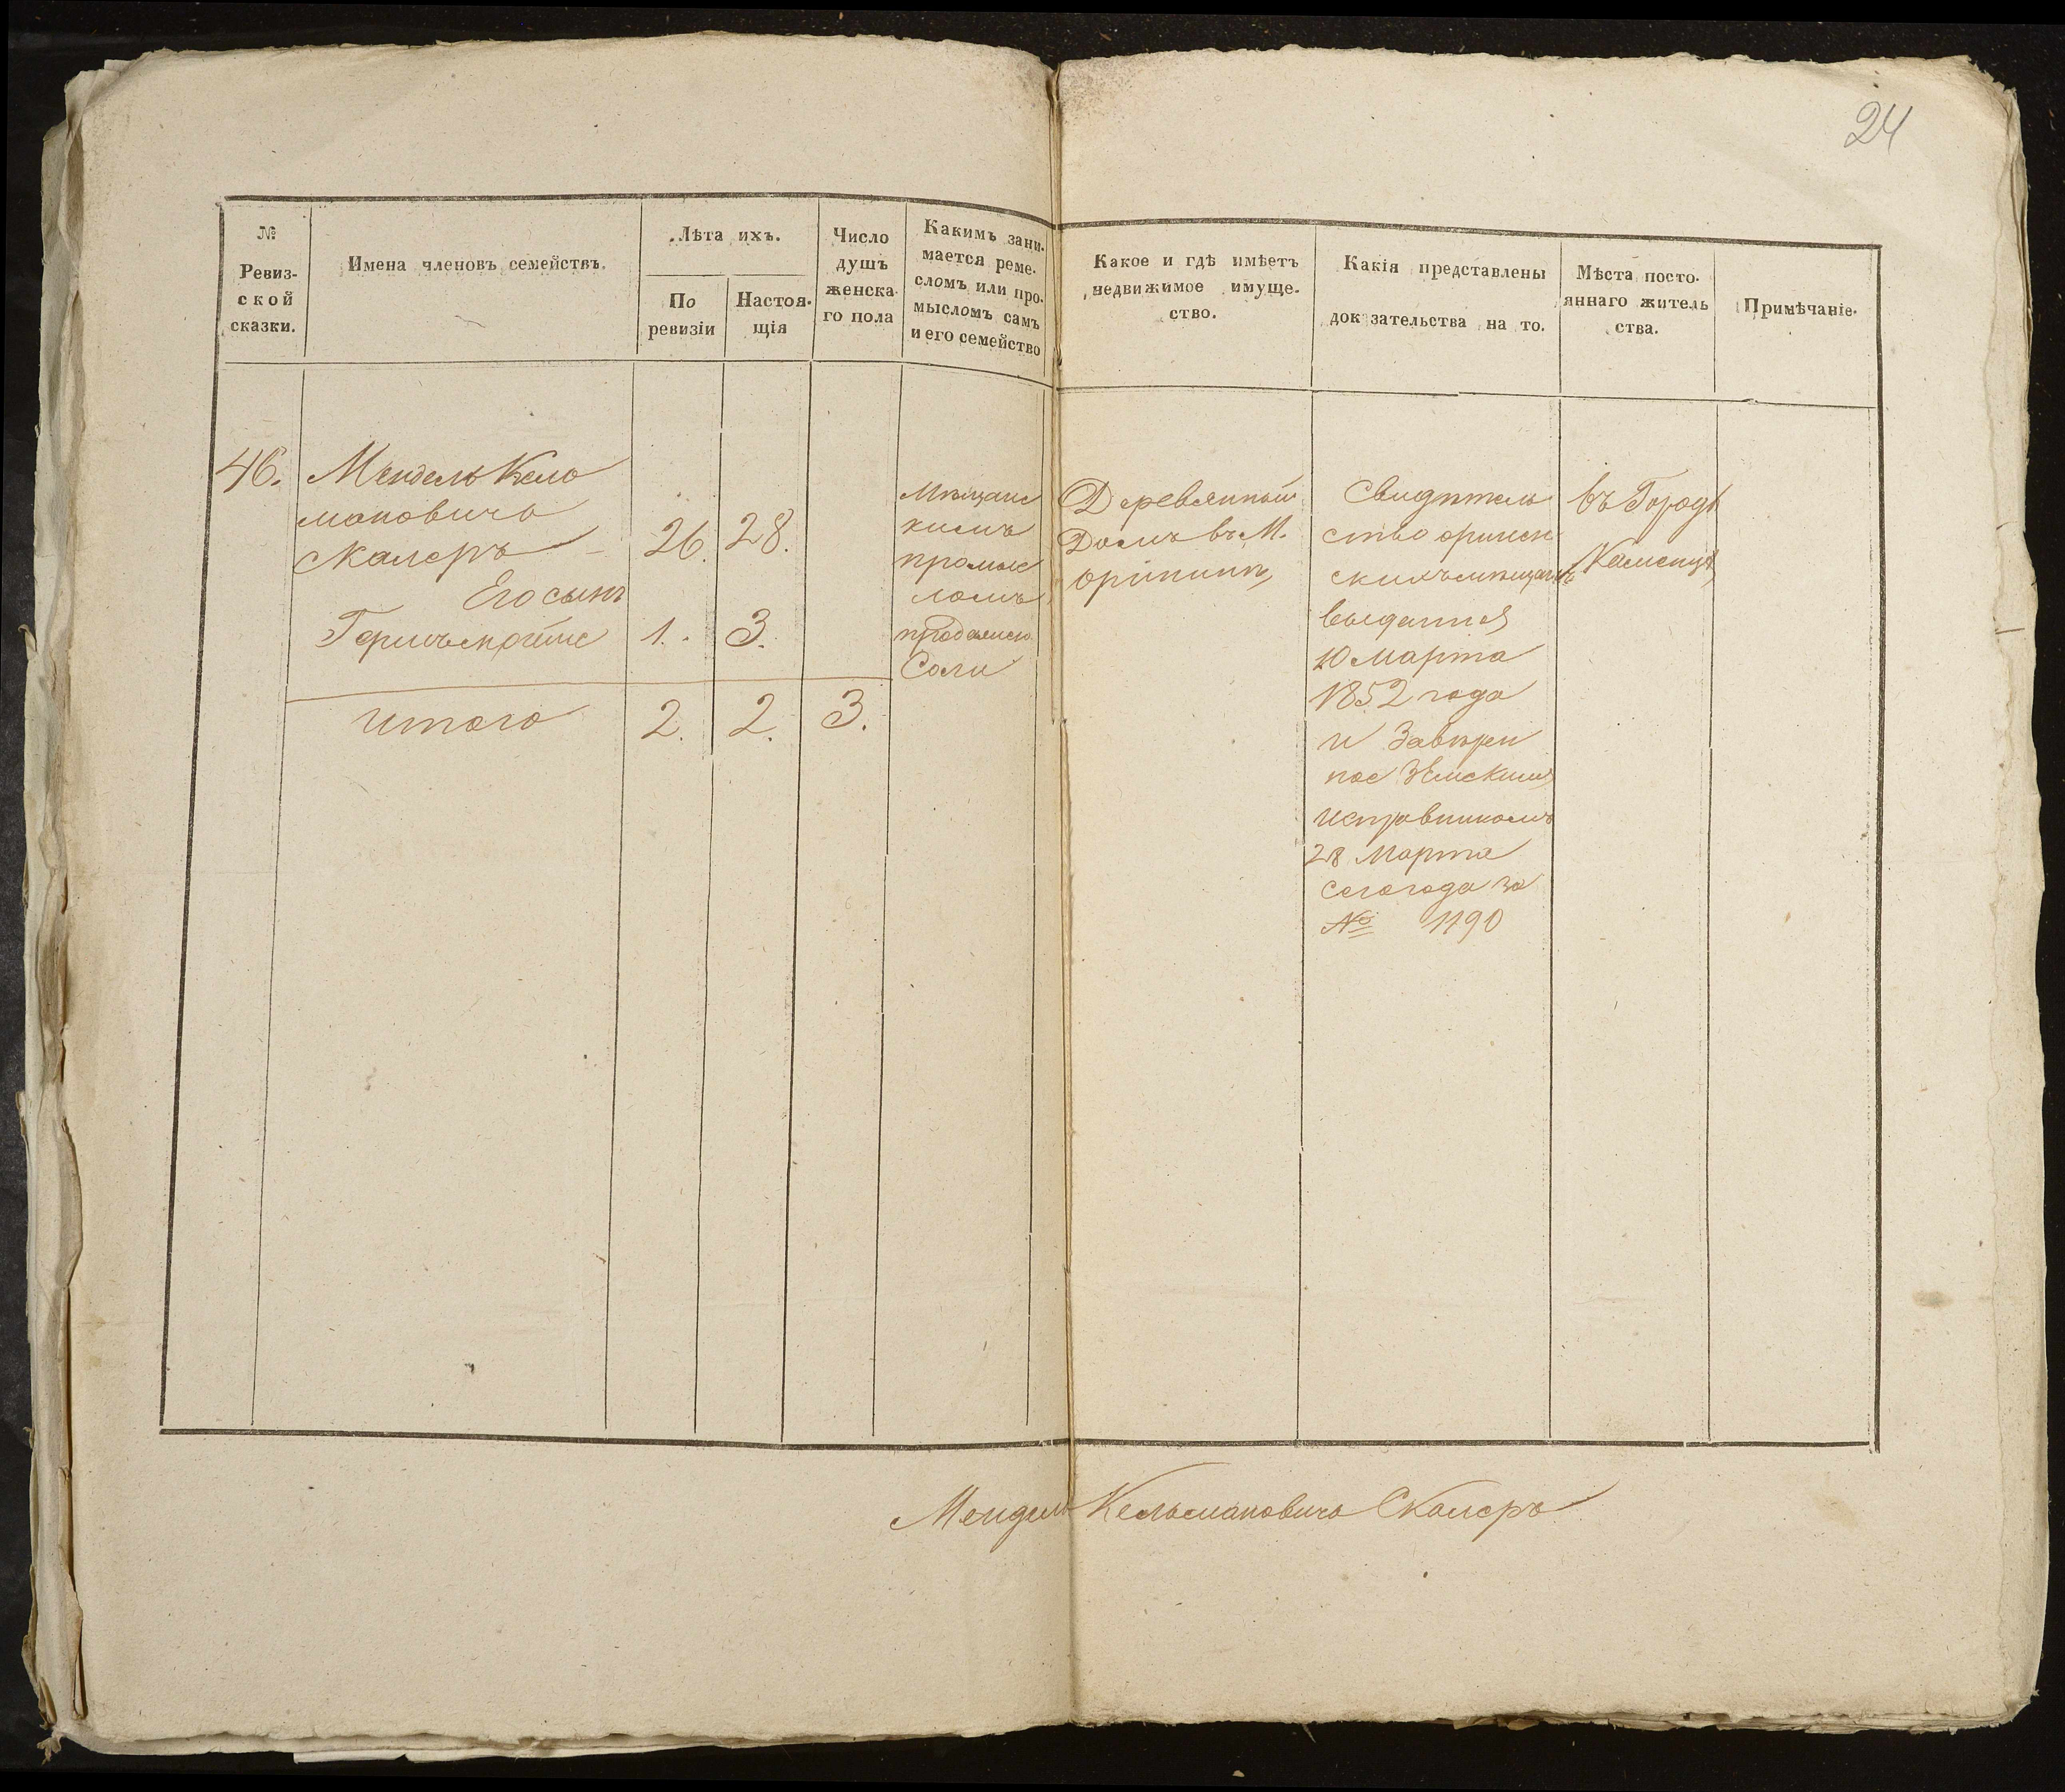 24
№
Ревиз-
ской
сказки.
Имена членовъ семействъ.
Лѣта ихъ.
По
ревизіи
Настоя-
щія
Число
душъ
женска-
го пола
Какимъ зани-
мается реме-
сломъ или про-
мысломъ самъ
и его семейство
Какое и гдѣ имѣетъ
недвижимое имуще-
ство.
Какія представлены
док зательства на то.
Мѣста посто-
яннаго житель
ства.
Примѣчаніе.
46.
Мендель Кель
мановичь
Скалеръ
26. 28.
Его сынъ
1. 3.
Итого 2. 2. 3.
Мѣщанс
кимъ
промыс
ломъ
Соли
Деревянный
Домъ въ М.
Орининѣ
Свидѣтель
ство оринен
скихъ мѣщанъ
выданная
10 Марта
1852 года
и Завѣрен
ное Земскимъ
Исправникомъ
28 Марта
сего года за
№ 1190
въ Городѣ
Каменцѣ
Мендель Кельмановичь Скалеръ